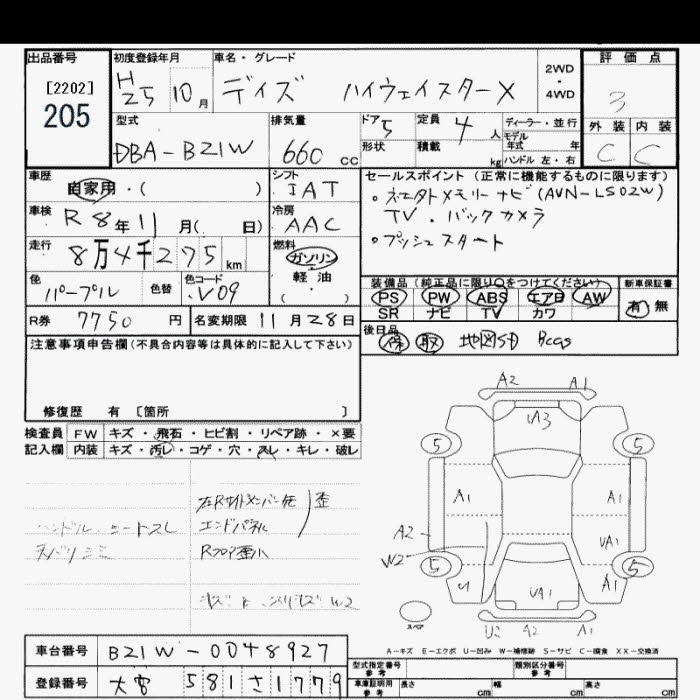 出品番号
[2202]
205
初度登録年月
H25 10月
車名・グレード
デイズ ハイウェイスターX
2WD・4WD
評価点
3
外装 内装
C C
型式
DBA-B21W
排気量
660 cc
ドア 5
形状
定員 4 人
積載 kg
ディーラー・並行
モデル年式 年
ハンドル 左・右
車歴
自家用・( )
シフト
IAT
車検
R8年11月( 日)
冷房
AAC
走行
8万4千275 km
燃料
ガソリン
軽・油
( )
色
パープル
色替
色コード
V09
R券 7750 円
名変期限 11月28日
セールスポイント(正常に機能するものに限ります)
TV・バックカメラ
プッシュスタート
装備品(純正品に限り○をつけてください)
PS PW ABS エアB AW
SR ナビ TV カワ
新車保証書
有 無
後日品
保 取 地図SD
注意事項申告欄(不具合内容等は具体的に記入して下さい)
修復歴 有 [箇所 ]
検査員記入欄
FW キズ・飛石・ヒビ割・リペア跡・×要
内装 キズ・汚レ・コゲ・穴・スレ・キレ・破レ
ハンドル、シートスレ
天バリシミ
エンドパネル
歪
A2 A1
UA3
5 5
A1 A1
A2
W2
UA1
5 5
U A1
UA1
U2 A2 A1
スペア
A-キズ E-エクボ U-凹み W-補修跡 S-サビ C-腐食 XX-交換済
車台番号 B21W-0048927
登録番号 581さ1779
型式指定番号 参考
類別区分番号 参考
車庫証明用 参考
長さ cm 幅 cm 高さ cm